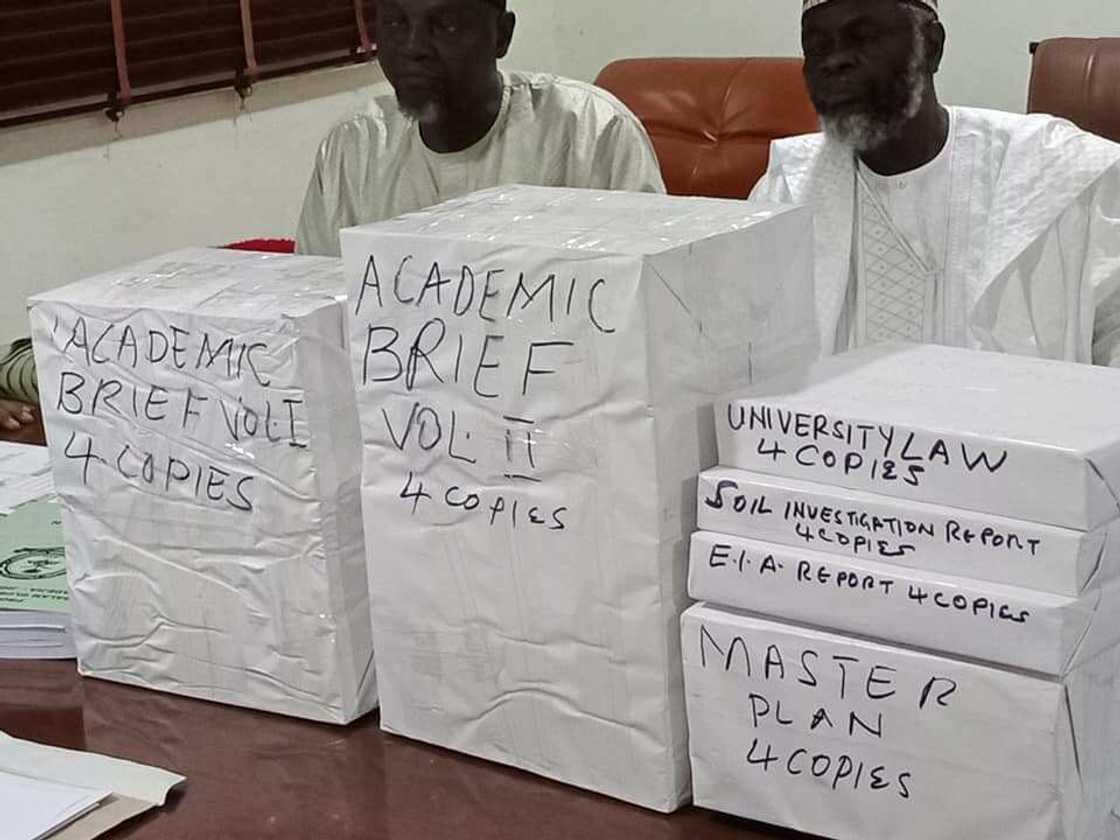 ACADEMIC
BRIEF VOL. I
4 COPIES
ACADEMIC
BRIEF
VOL. II
4 COPIES
UNIVERSITY LAW
4 COPIES
SOIL INVESTIGATION REPORT
4 COPIES
E.I.A. REPORT 4 COPIES
MASTER
PLAN
4 COPIES